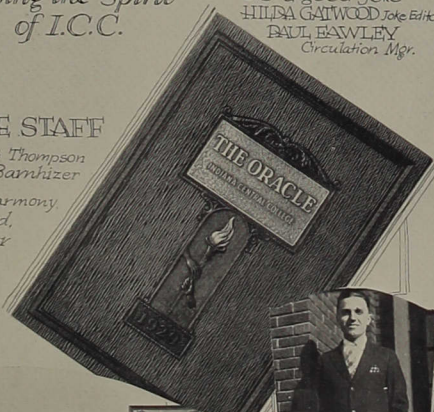 Spirit
of I.C.C.
HILDA GATWOOD Joke Edit
PAUL FAWLEY
Circulation Mgr.
STAFF
Thompson
Barnhizer
armony,
d,
r
THE ORACLE
INDIANA CENTRAL COLLEGE